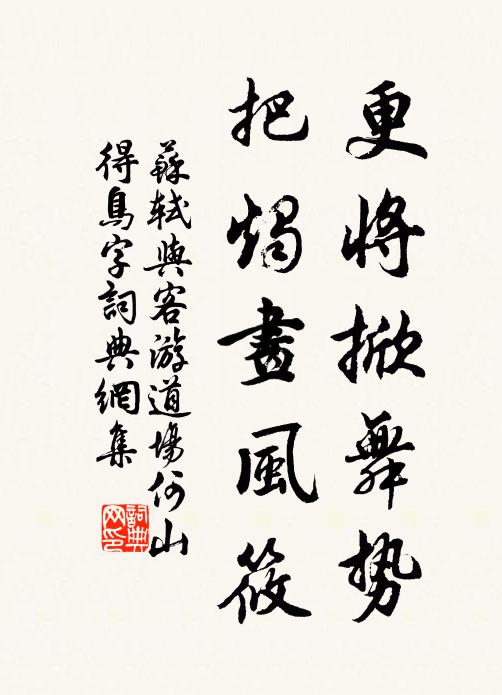 更將掀舞勢
把燭畫風筱
蘇軾與客游道場何山
得鳥字詞典網集
詞典网印